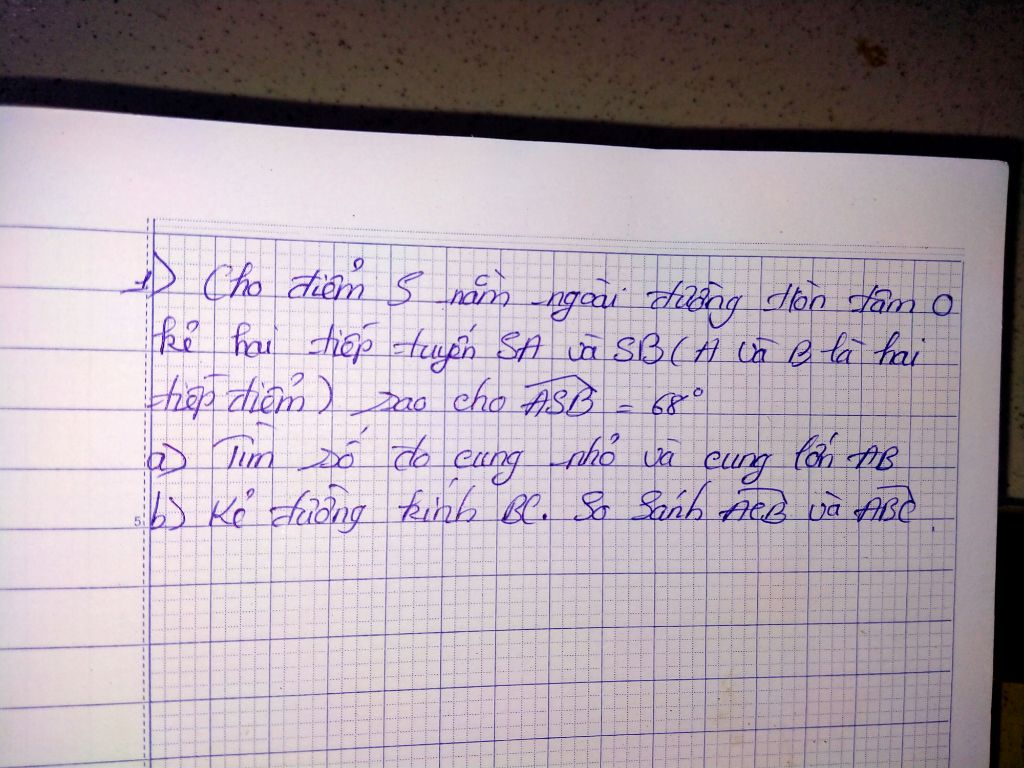 1) Cho điểm S nằm ngoài đường tròn tâm O
kẻ hai tiếp tuyến SA và SB ( A và B là hai
tiếp điểm ) sao cho ASB = 68°
a) Tìm số đo cung nhỏ và cung lớn AB
5 b) Kẻ đường kính BC. So sánh ACB và ABC.